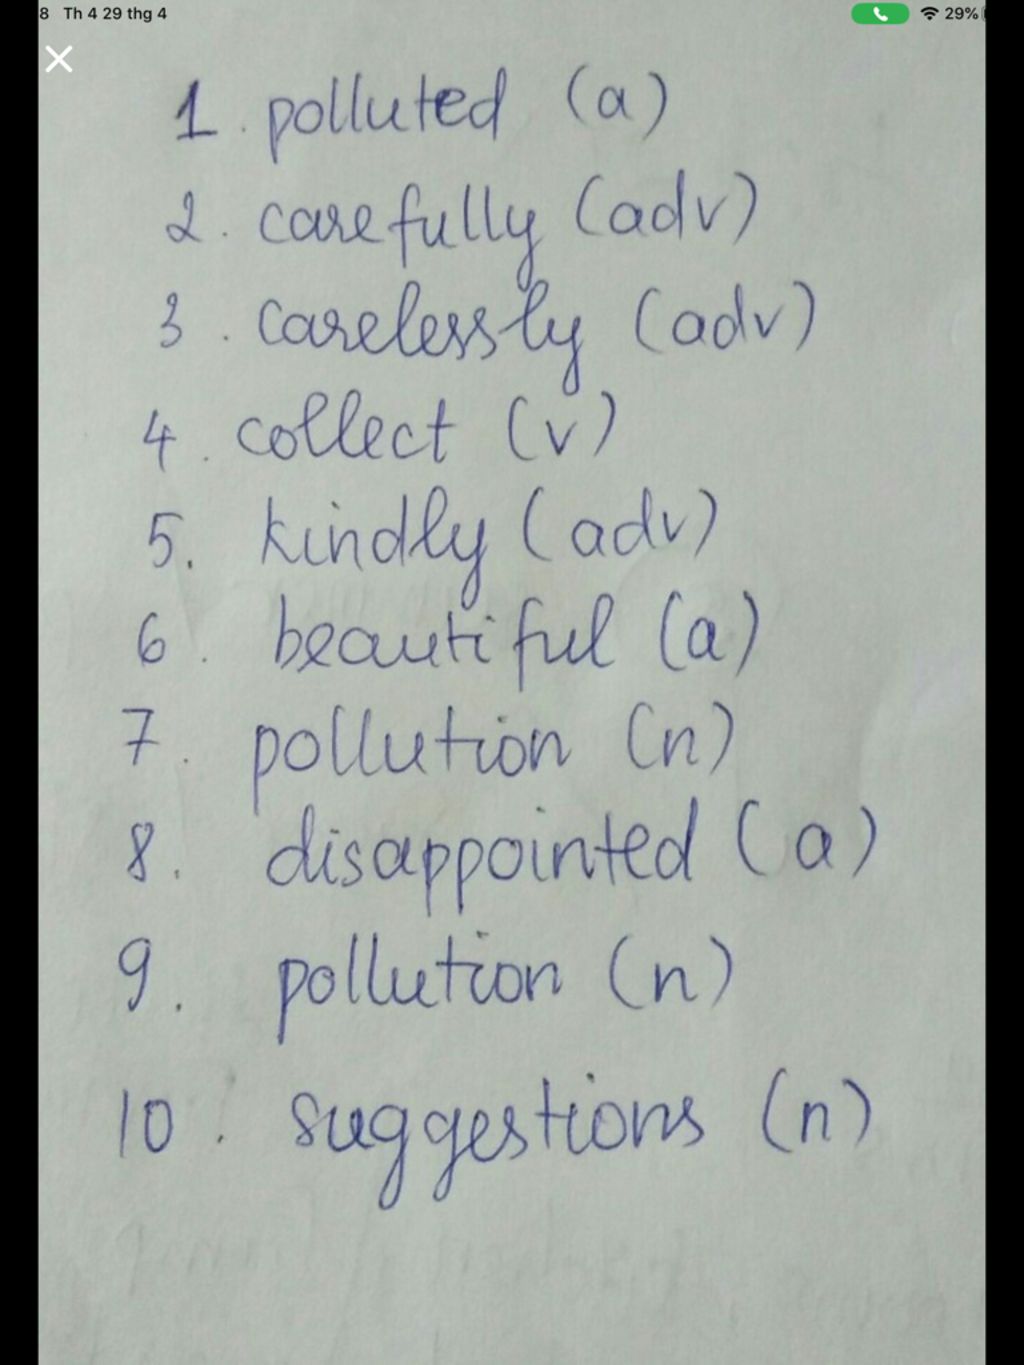 8 Th 4 29 thg 4 29%
1. polluted (a)
2. carefully (adv)
3. carelessly (adv)
4. collect (v)
5. kindly (adv)
6. beautiful (a)
7. pollution (n)
8. disappointed (a)
9. pollution (n)
10. suggestions (n)